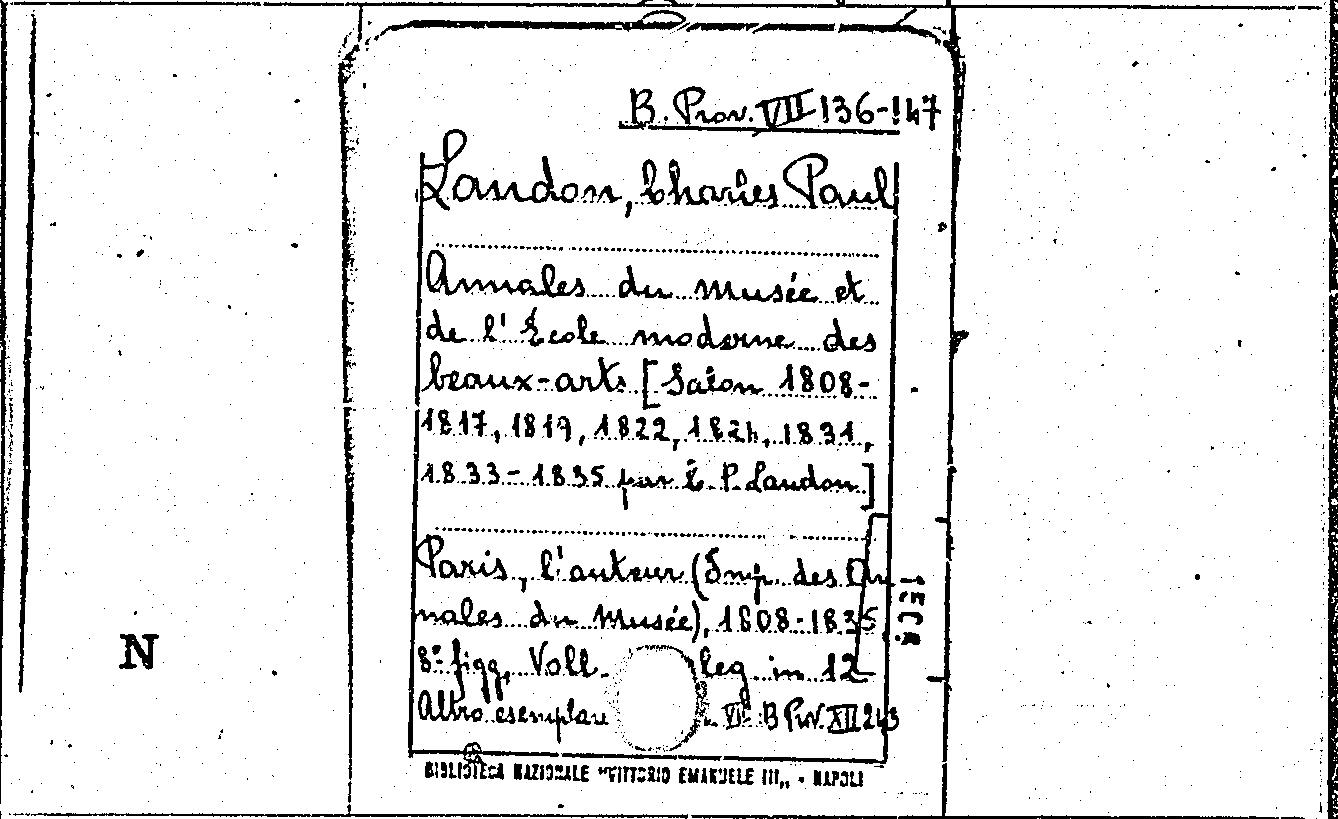 B. Prov. VII 136-147
Landon, Charles Paul
Annales du Musée et
de l'École moderne des
beaux-arts [Salon 1808-
1817, 1819, 1822, 1824, 1831,
1833-1835 par C. P. Landon]
Paris, l'auteur (Imp. des An
nales du Musée), 1808-1835
8° figg. Voll. leg. in 12
Altro esemplare VI B. Prov. XII 243
N
BIBLIOTECA NAZIONALE "VITTORIO EMANUELE III„ - NAPOLI